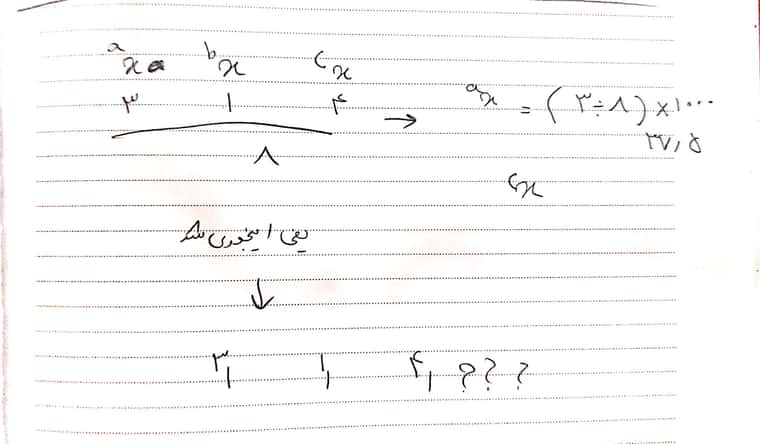 a x b x c x
۳ ۱ ۴ → a x = (۳ ÷ ۸) × ۱۰۰۰
۸ ۳۷٫۵
c x
یعنی اینجوری شد
↓
۳٫ ۱٫ ۴٫ ? ? ?